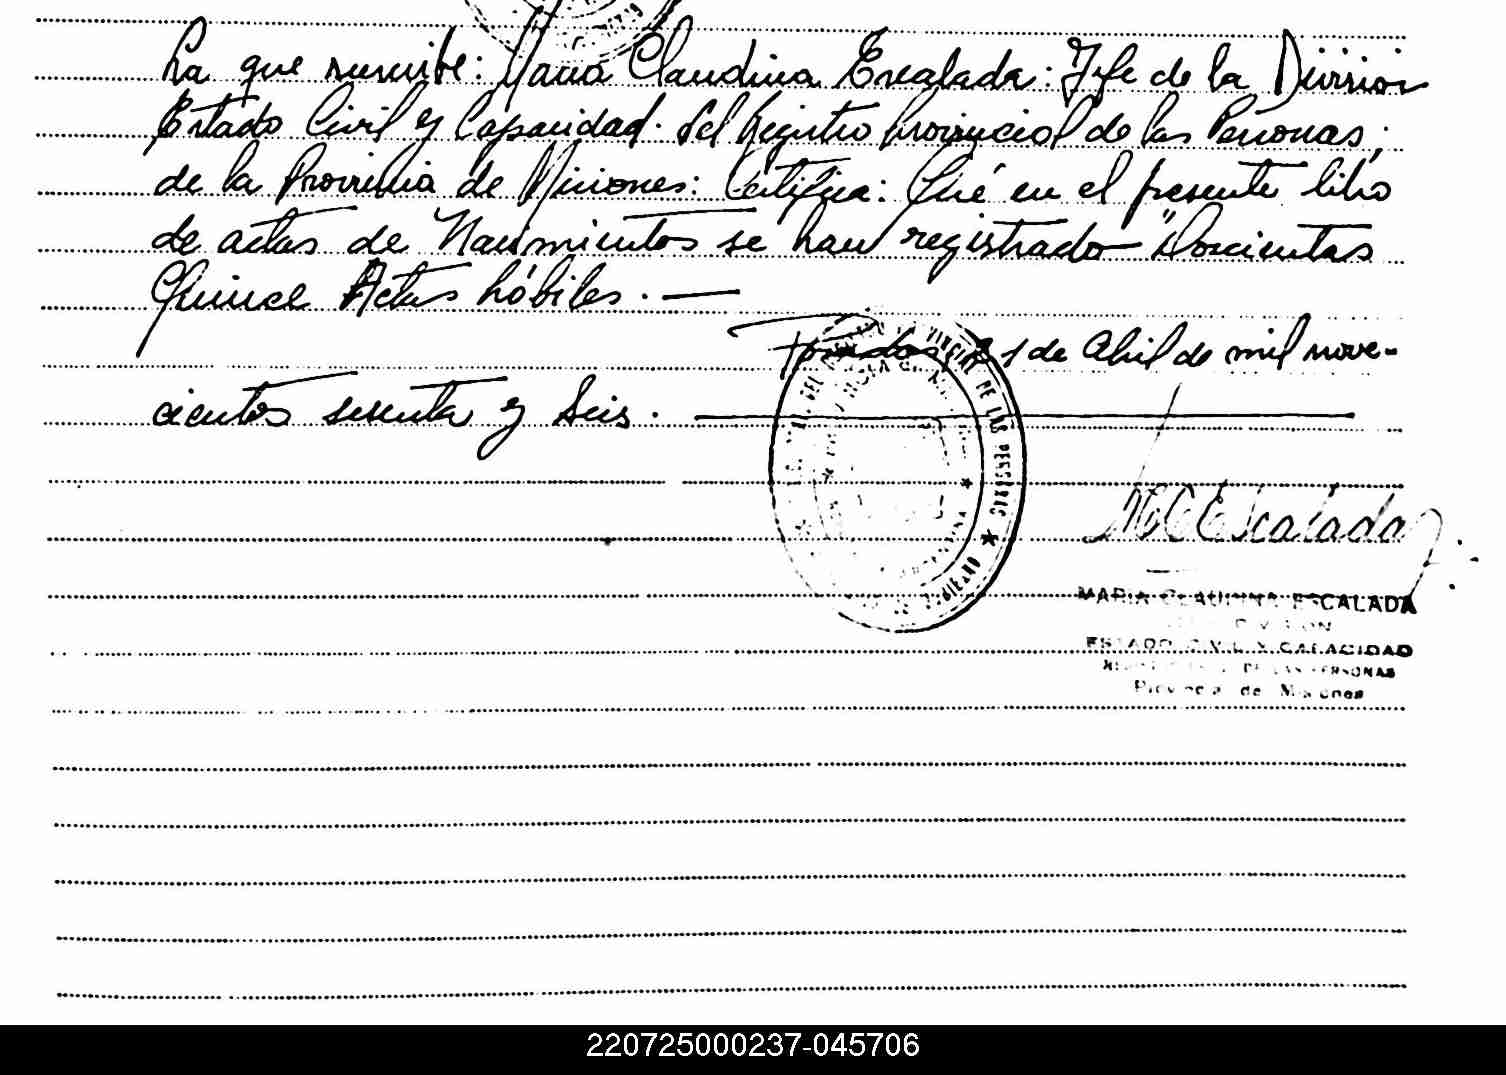 La que suscribe: Maria Claudina Escalada: Jefe de la Division
Estado Civil y Capacidad. del Registro Provincial de las Personas;
de la Provincia de Misiones: Certifica: Qué en el presente libro
de actas de Nacimientos se han registrado "Doscientas
Quince Actas hábiles. —
Posadas, 21 de Abril de mil nove-
cientos sesenta y seis. —
PROVINCIAL DE LAS PERSONAS ★
M C Escalada
MARIA CLAUDINA ESCALADA
DIVISION
ESTADO CIVIL Y CAPACIDAD
DE LAS PERSONAS
Provincia de Misiones
220725000237-045706